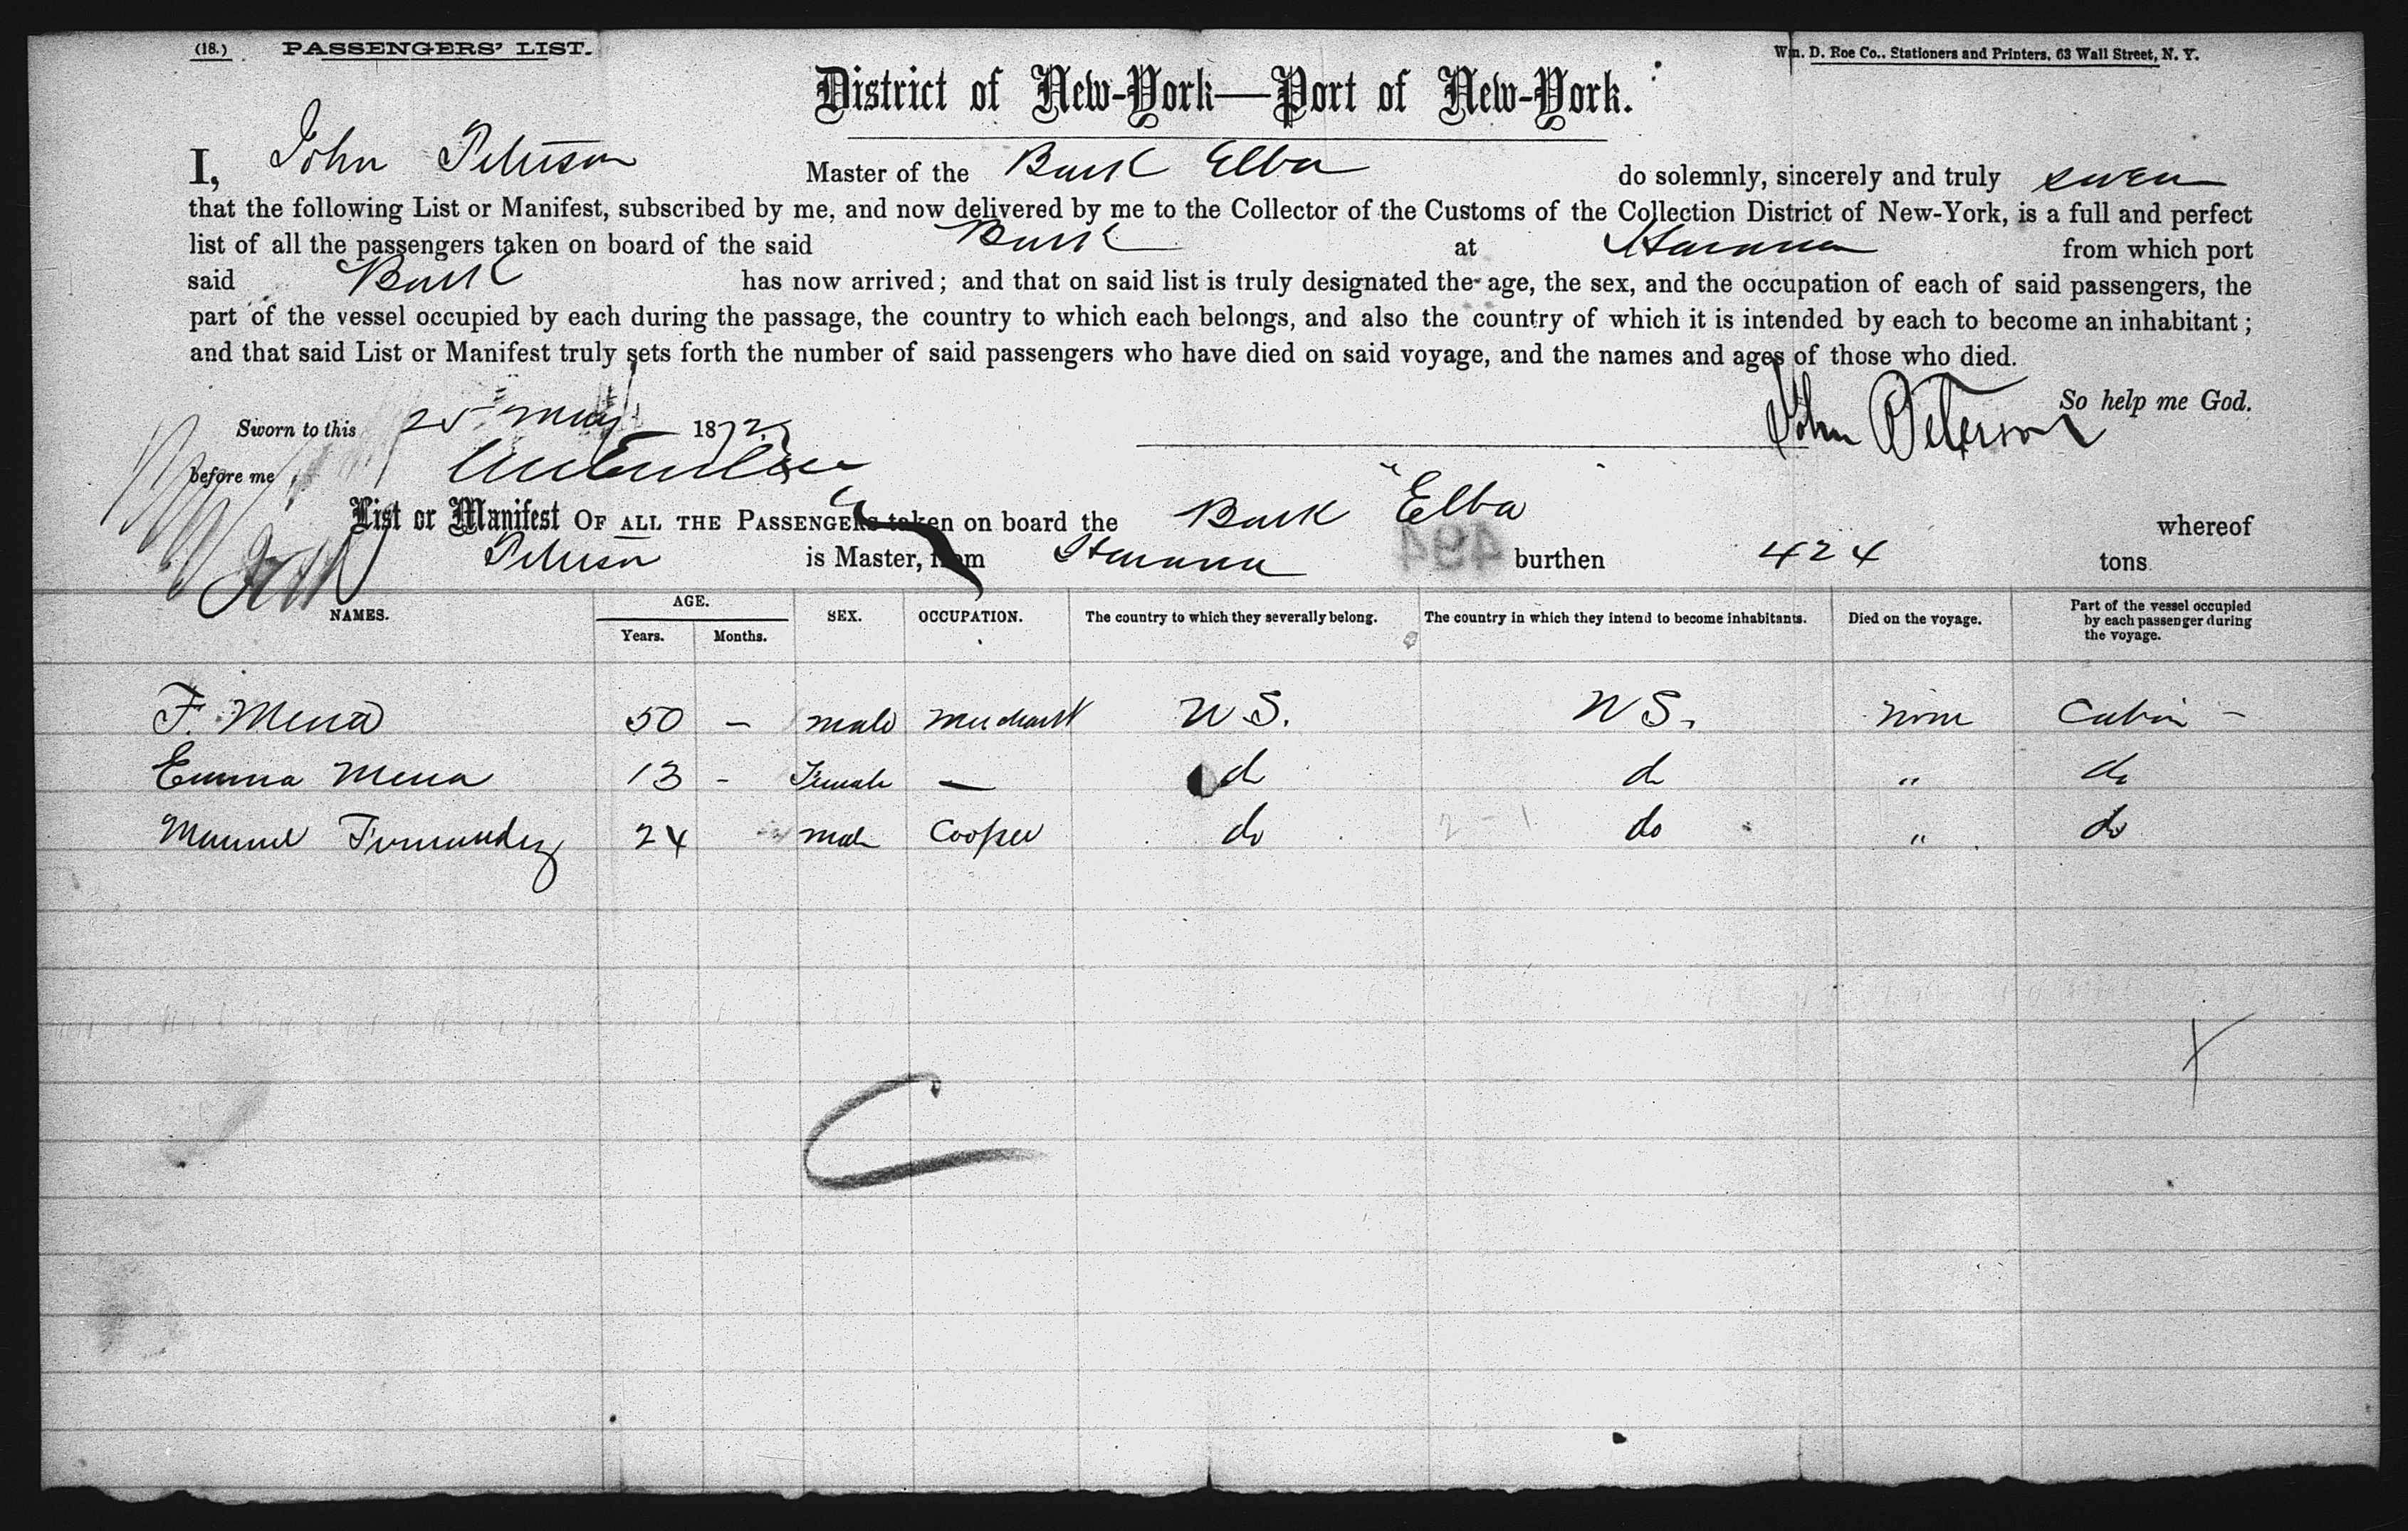 (18.) PASSENGERS' LIST.
Wm. D. Roe Co., Stationers and Printers, 63 Wall Street, N. Y.
District of New-York—Port of New-York.
I, John Peterson Master of the Bark Elba do solemnly, sincerely and truly swear
that the following List or Manifest, subscribed by me, and now delivered by me to the Collector of the Customs of the Collection District of New-York, is a full and perfect
list of all the passengers taken on board of the said Bark at Havana from which port
said Bark has now arrived; and that on said list is truly designated the age, the sex, and the occupation of each of said passengers, the
part of the vessel occupied by each during the passage, the country to which each belongs, and also the country of which it is intended by each to become an inhabitant;
and that said List or Manifest truly sets forth the number of said passengers who have died on said voyage, and the names and ages of those who died.
So help me God.
Sworn to this 25 May 1872 John Peterson
before me
List or Manifest OF ALL THE PASSENGERS taken on board the Bark "Elba" whereof
Peterson is Master, from Havana 494 burthen 424 tons
NAMES. AGE. Years. Months. SEX. OCCUPATION. The country to which they severally belong. The country in which they intend to become inhabitants. Died on the voyage. Part of the vessel occupied by each passenger during the voyage.
F. Mena 50 - male Merchant U S. U S. none Cabin -
Emma Mena 13 - Female — do do " do
Manuel Fernandez 24 male Cooper do 2-1 do " do
C